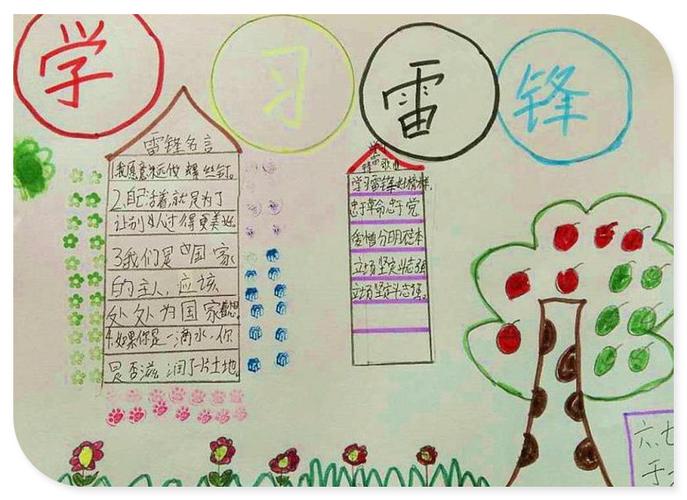 学习雷锋
雷锋名言
1我愿意永远做 螺丝钉。
2.自己活着,就是为了
让别人过得更美好
3我们是国家
的主人,应该
处处为国家着想
4.如果你是一滴水,你
是否滋润了一片土地
学习雷锋好榜样,
忠于革命忠于党
爱憎分明不忘本
立场坚定斗志强
立场坚定斗志强。
六.七
于